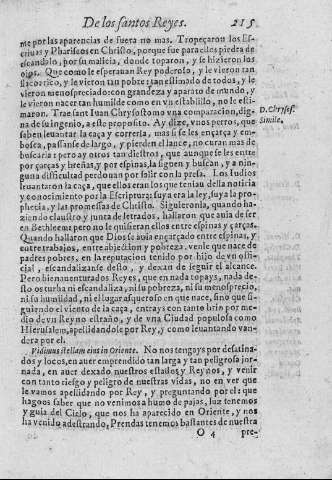 De los santos Reyes. 215
me por las aparencias de fuera no mas. Tropeçaron los Es-
criuas y Phariseos en Christo, porque fue para ellos piedra de
escandalo, por su malicia, donde toparon, y se hizieron los
ojos. Que como le esperauan Rey poderoso, y le vieron tan
flacocito, y le vieron tan pobre; tan estimado de todos, y le
vieron menospreciado: con grandeza y aparato de mundo, y
le vieron nacer tan humilde como en vn establillo, no le esti-
maron. Trae sant Iuan Chrysostomo vna comparacion, dig-
na de su ingenio, a este proposito. Ay dize, vnos perros, que
saben leuantar la caça y correrla, mas si se les ençarça y em-
bosca, passanse de largo, y pierden el lance, no curan mas de
buscarla: pero ay otros tan diestros, que aunque se les entre
por çarças y breñas, y por espinas, la siguen y buscan, y a nin-
guna difficultad perdonan por salir con la presa. Los Iudios
leuantaron la caça, que ellos eran los que tenian della noticia
y conocimiento por la Escriptura: suya era la ley, suya la pro-
phecia, y las promessas de Christo. Siguieronla, quando ha-
ziendo claustro y junta de letrados, hallaron que auia de ser
en Bethleem: pero no le quisieran ellos entre espinas y çarças.
Quando hallaron que Dios se auia ençarçado entre espinas, y
entre trabajos, entre abjection y pobreza, venle que nace de
padres pobres, en la reputacion tenido por hijo de vn offi-
cial, escandalizanse desto, y dexan de seguir el alcance.
Pero bienauenturados Reyes, que en nada topays, nada de-
sto os turba ni escandaliza, ni su pobreza, ni su menosprecio,
ni su humildad, ni el lugar asqueroso en que nace, sino que si-
guiendo el viento de la caça, entrays con tanto brio por me-
dio de vn Reyno estraño, y de vna Ciudad populosa como
Hierusalem, apellidandole por Rey, y como leuantando van-
dera por el.
Vidimus stellam eius in Oriente. No nos tengays por desatina-
dos y locos, en auer emprendido tan larga y tan peligrosa jor-
nada, en auer dexado nuestros estados y Reynos, y venir
con tanto riesgo y peligro de nuestras vidas, no en ver que
le vamos apellidando por Rey, y preguntando por el: que
hagoos saber que no venimos a humo de pajas, luz tenemos
y guia del Cielo, que nos ha aparecido en Oriente, y nos
ha venido adestrando, Prendas tenemos bastantes de nuestra
O 4 pre-
D. Chrysost.
Simile.